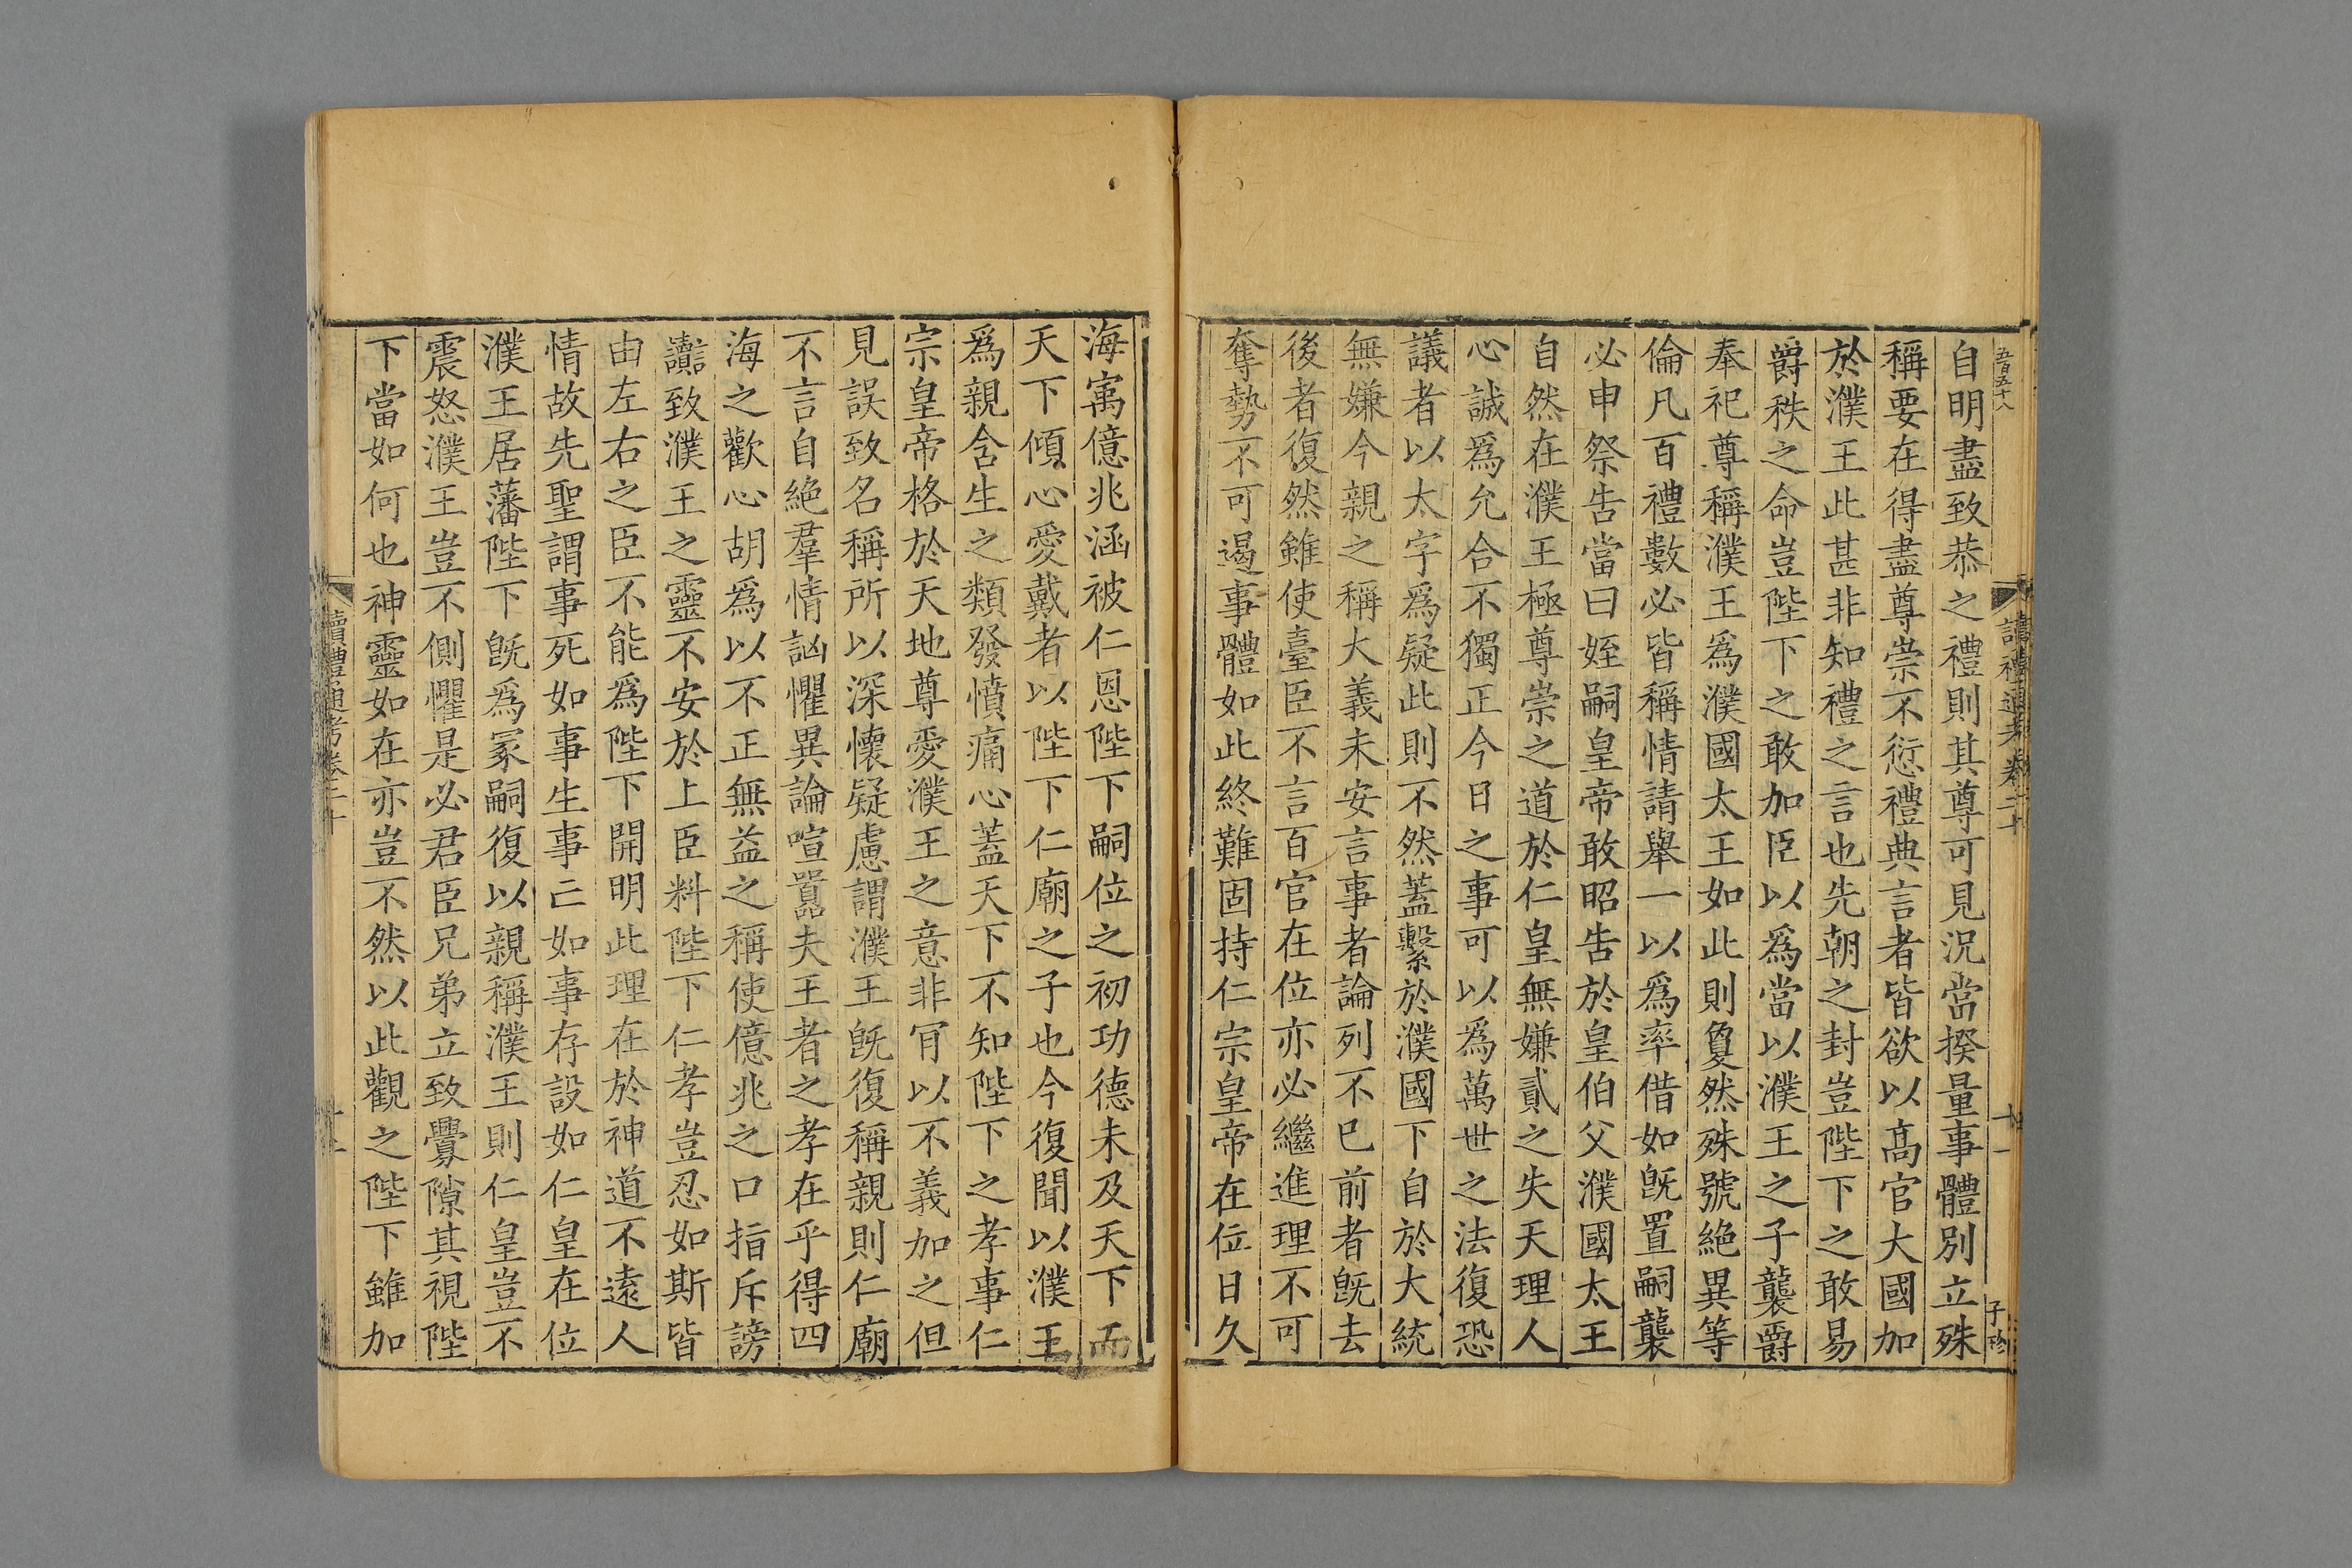 五百五十八
讀禮通考卷二十
子珍
自明盡致恭之禮則其尊可見況當揆量事體別立殊
稱要在得盡尊崇不愆禮典言者皆欲以高官大國加
於濮王此甚非知禮之言也先朝之封豈陛下之敢易
爵秩之命豈陛下之敢加臣以爲當以濮王之子襲爵
奉祀尊稱濮王爲濮國太王如此則夐然殊號絶異等
倫凡百禮數必皆稱情請舉一以爲率借如旣置嗣襲
必申祭告當曰姪嗣皇帝敢昭告於皇伯父濮國太王
自然在濮王極尊崇之道於仁皇無嫌貳之失天理人
心誠爲允合不獨正今日之事可以爲萬世之法復恐
議者以太字爲疑此則不然蓋繫於濮國下自於大統
無嫌今親之稱大義未安言事者論列不已前者旣去
後者復然雖使臺臣不言百官在位亦必繼進理不可
奪勢不可遏事體如此終難固持仁宗皇帝在位日久
海㝢億兆涵被仁恩陛下嗣位之初功德未及天下而
天下傾心愛戴者以陛下仁廟之子也今復聞以濮王
爲親含生之類發憤痛心蓋天下不知陛下之孝事仁
宗皇帝格於天地尊愛濮王之意非肎以不義加之但
見誤致名稱所以深懷疑慮謂濮王旣復稱親則仁廟
不言自絶羣情訩懼異論喧囂夫王者之孝在乎得四
海之歡心胡爲以不正無益之稱使億兆之口指斥謗
讟致濮王之靈不安於上臣料陛下仁孝豈忍如斯皆
由左右之臣不能爲陛下開明此理在於神道不遠人
情故先聖謂事死如事生事亡如事存設如仁皇在位
濮王居藩陛下旣爲冢嗣復以親稱濮王則仁皇豈不
震怒濮王豈不側懼是必君臣兄弟立致釁隙其視陛
下當如何也神靈如在亦豈不然以此觀之陛下雖加
讀禮通考卷二十